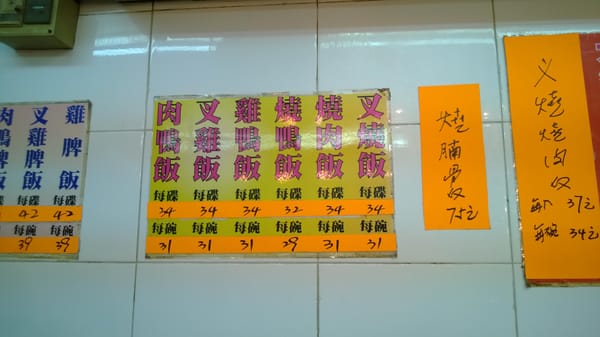 雞脾飯 每碟 42 每碗 39
叉雞脾飯 每碟 42 每碗 39
肉鴨飯
叉燒飯 每碟 34 每碗 31
燒肉飯 每碟 34 每碗 31
燒鴨飯 每碟 32 每碗 29
雞鴨飯 每碟 34 每碗 31
叉雞飯 每碟 34 每碗 31
肉鴨飯 每碟 34 每碗 31
燒腩骨
75元
燒肉
37元
34元